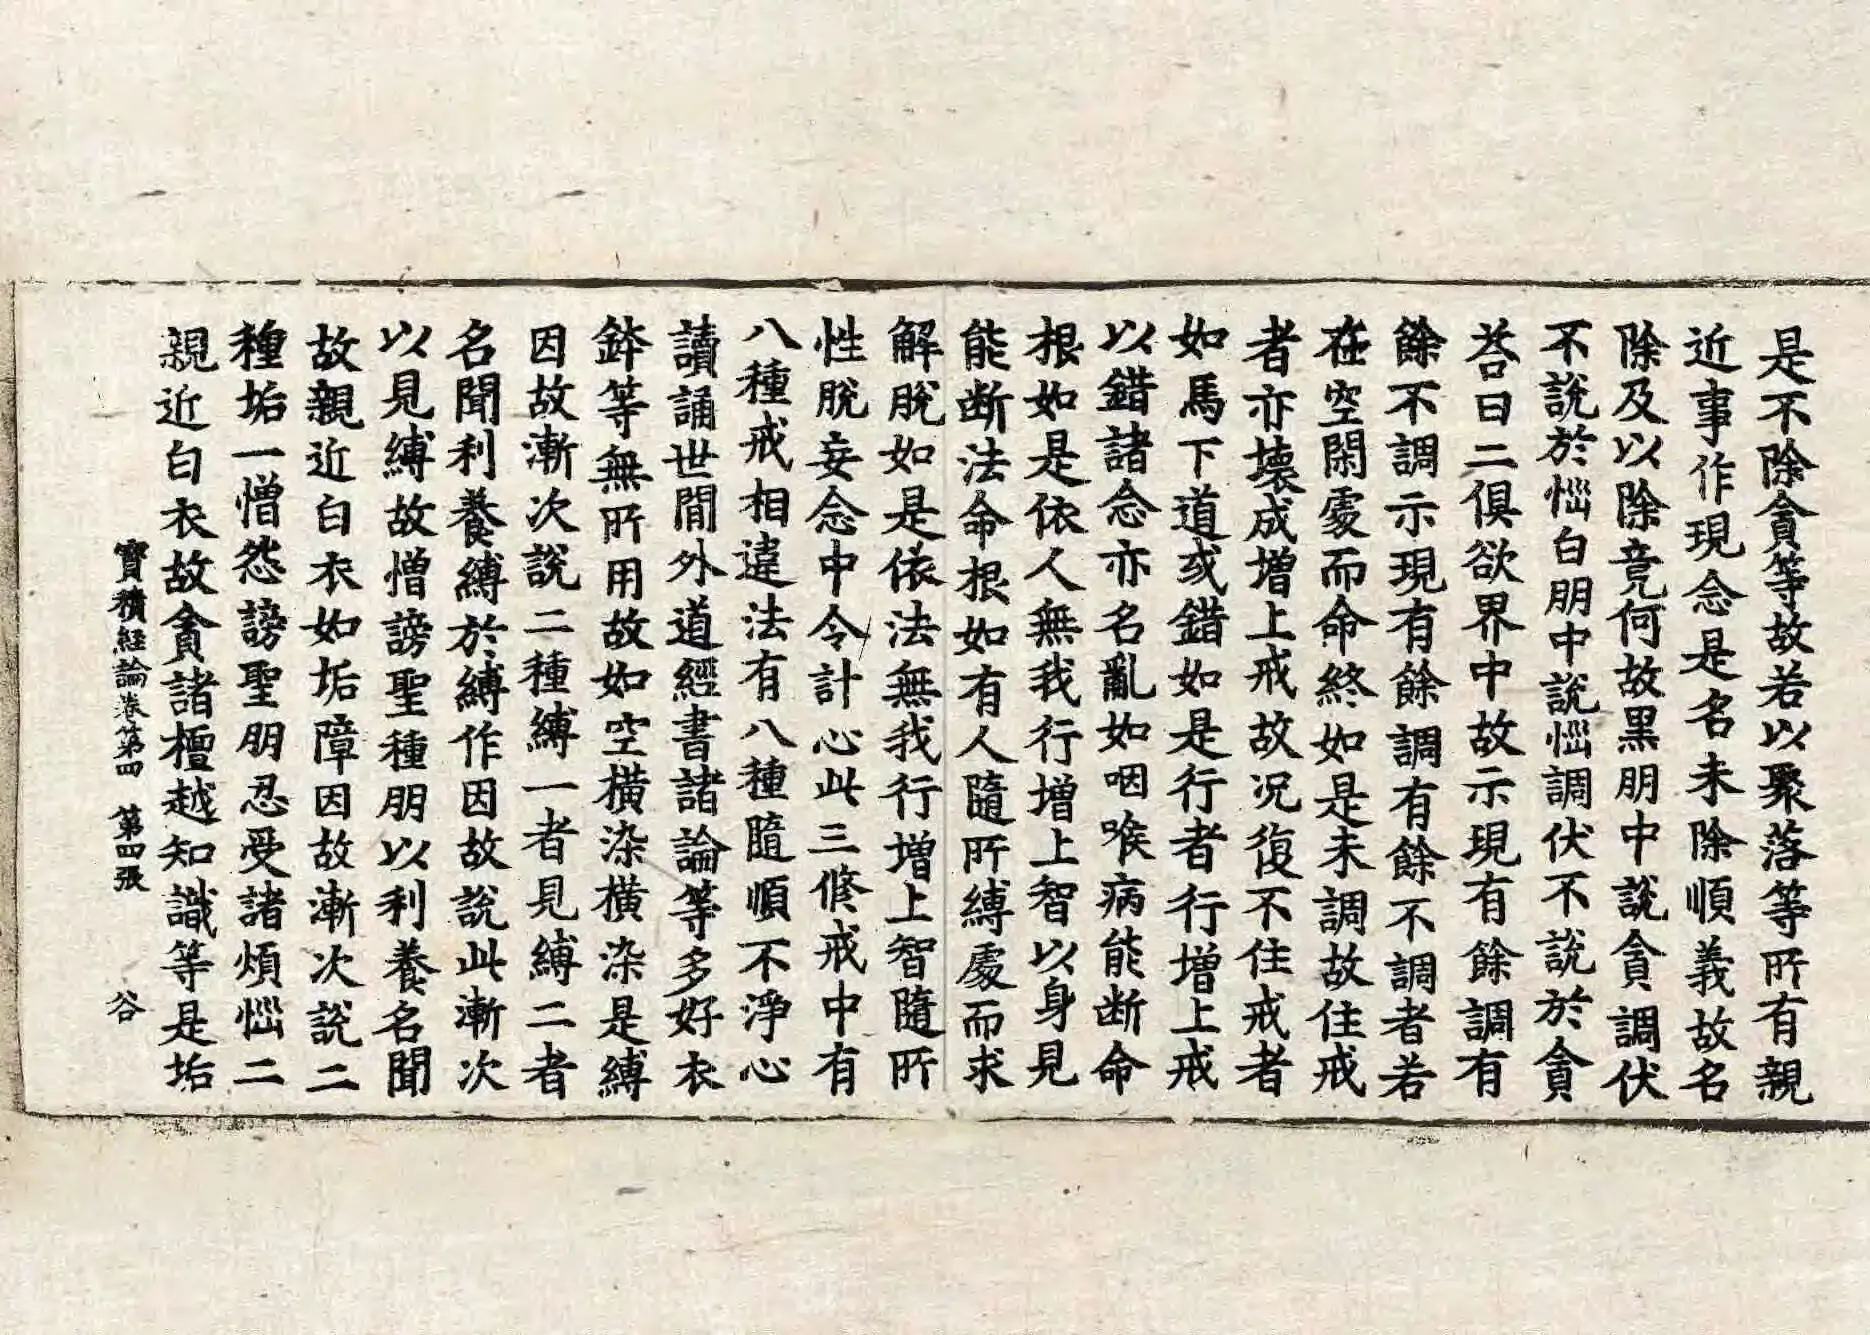 是不除貪等故若以聚落等所有親
近事作現念是名未除順義故名
除及以除竟何故黒朋中說貪調伏
不說於惱白朋中說惱調伏不說於貪
荅曰二俱欲界中故示現有餘調有
餘不調示現有餘調有餘不調者若
在空閑處而命終如是未調故住戒
者亦壊成增上戒故况復不住戒者
如馬下道或錯如是行者行增上戒
以錯諸念亦名亂如咽喉病能断命
根如是依人無我行增上智以身見
能断法命根如有人隨所縛處而求
解脫如是依法無我行增上智隨所
性脫妄念中令計心此三修戒中有
八種戒相違法有八種隨順不淨心
讀誦世間外道經書諸論等多好衣
鉢等無所用故如空橫染橫染是縛
因故漸次說二種縛一者見縛二者
名聞利養縛於縛作因故說此漸次
以見縛故憎謗聖種朋以利養名聞
故親近白衣如垢障因故漸次說二
種垢一憎怨謗聖朋忍受諸煩惱二
親近白衣故貪諸檀越知識等是垢
寶積經論卷第四 第四張 谷